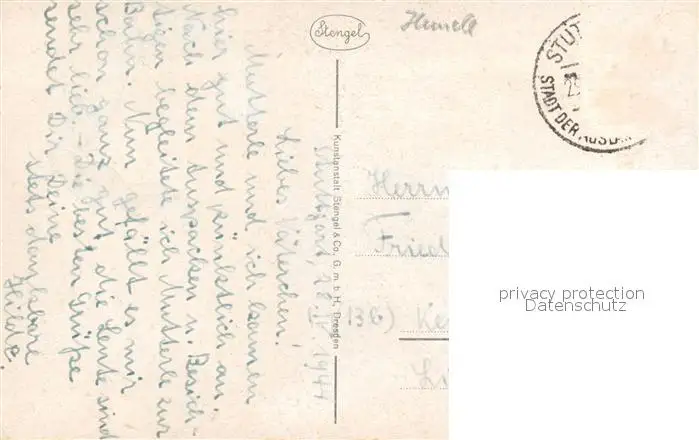 Stengel
Hunell
STUT
25
STADT DER AUSLAN
Stuttgart, 1944
Liebes Väterchen!
Mutterle und ich kamen
hier gut und pünktlich an.
Nach dem Auspacken u. Besich-
tigen begleitete ich Mutterle zur
Bahn. Nun gefällt es mir
schon ganz gut, die Leute sind
sehr lieb. - Die besten Grüße
sendet Dir Deine
stets dankbare
Hilde.
Kunstanstalt Stengel & Co. G. m. b. H. Dresden
Herrn
Fried
(13b) Ke
privacy protection
Datenschutz